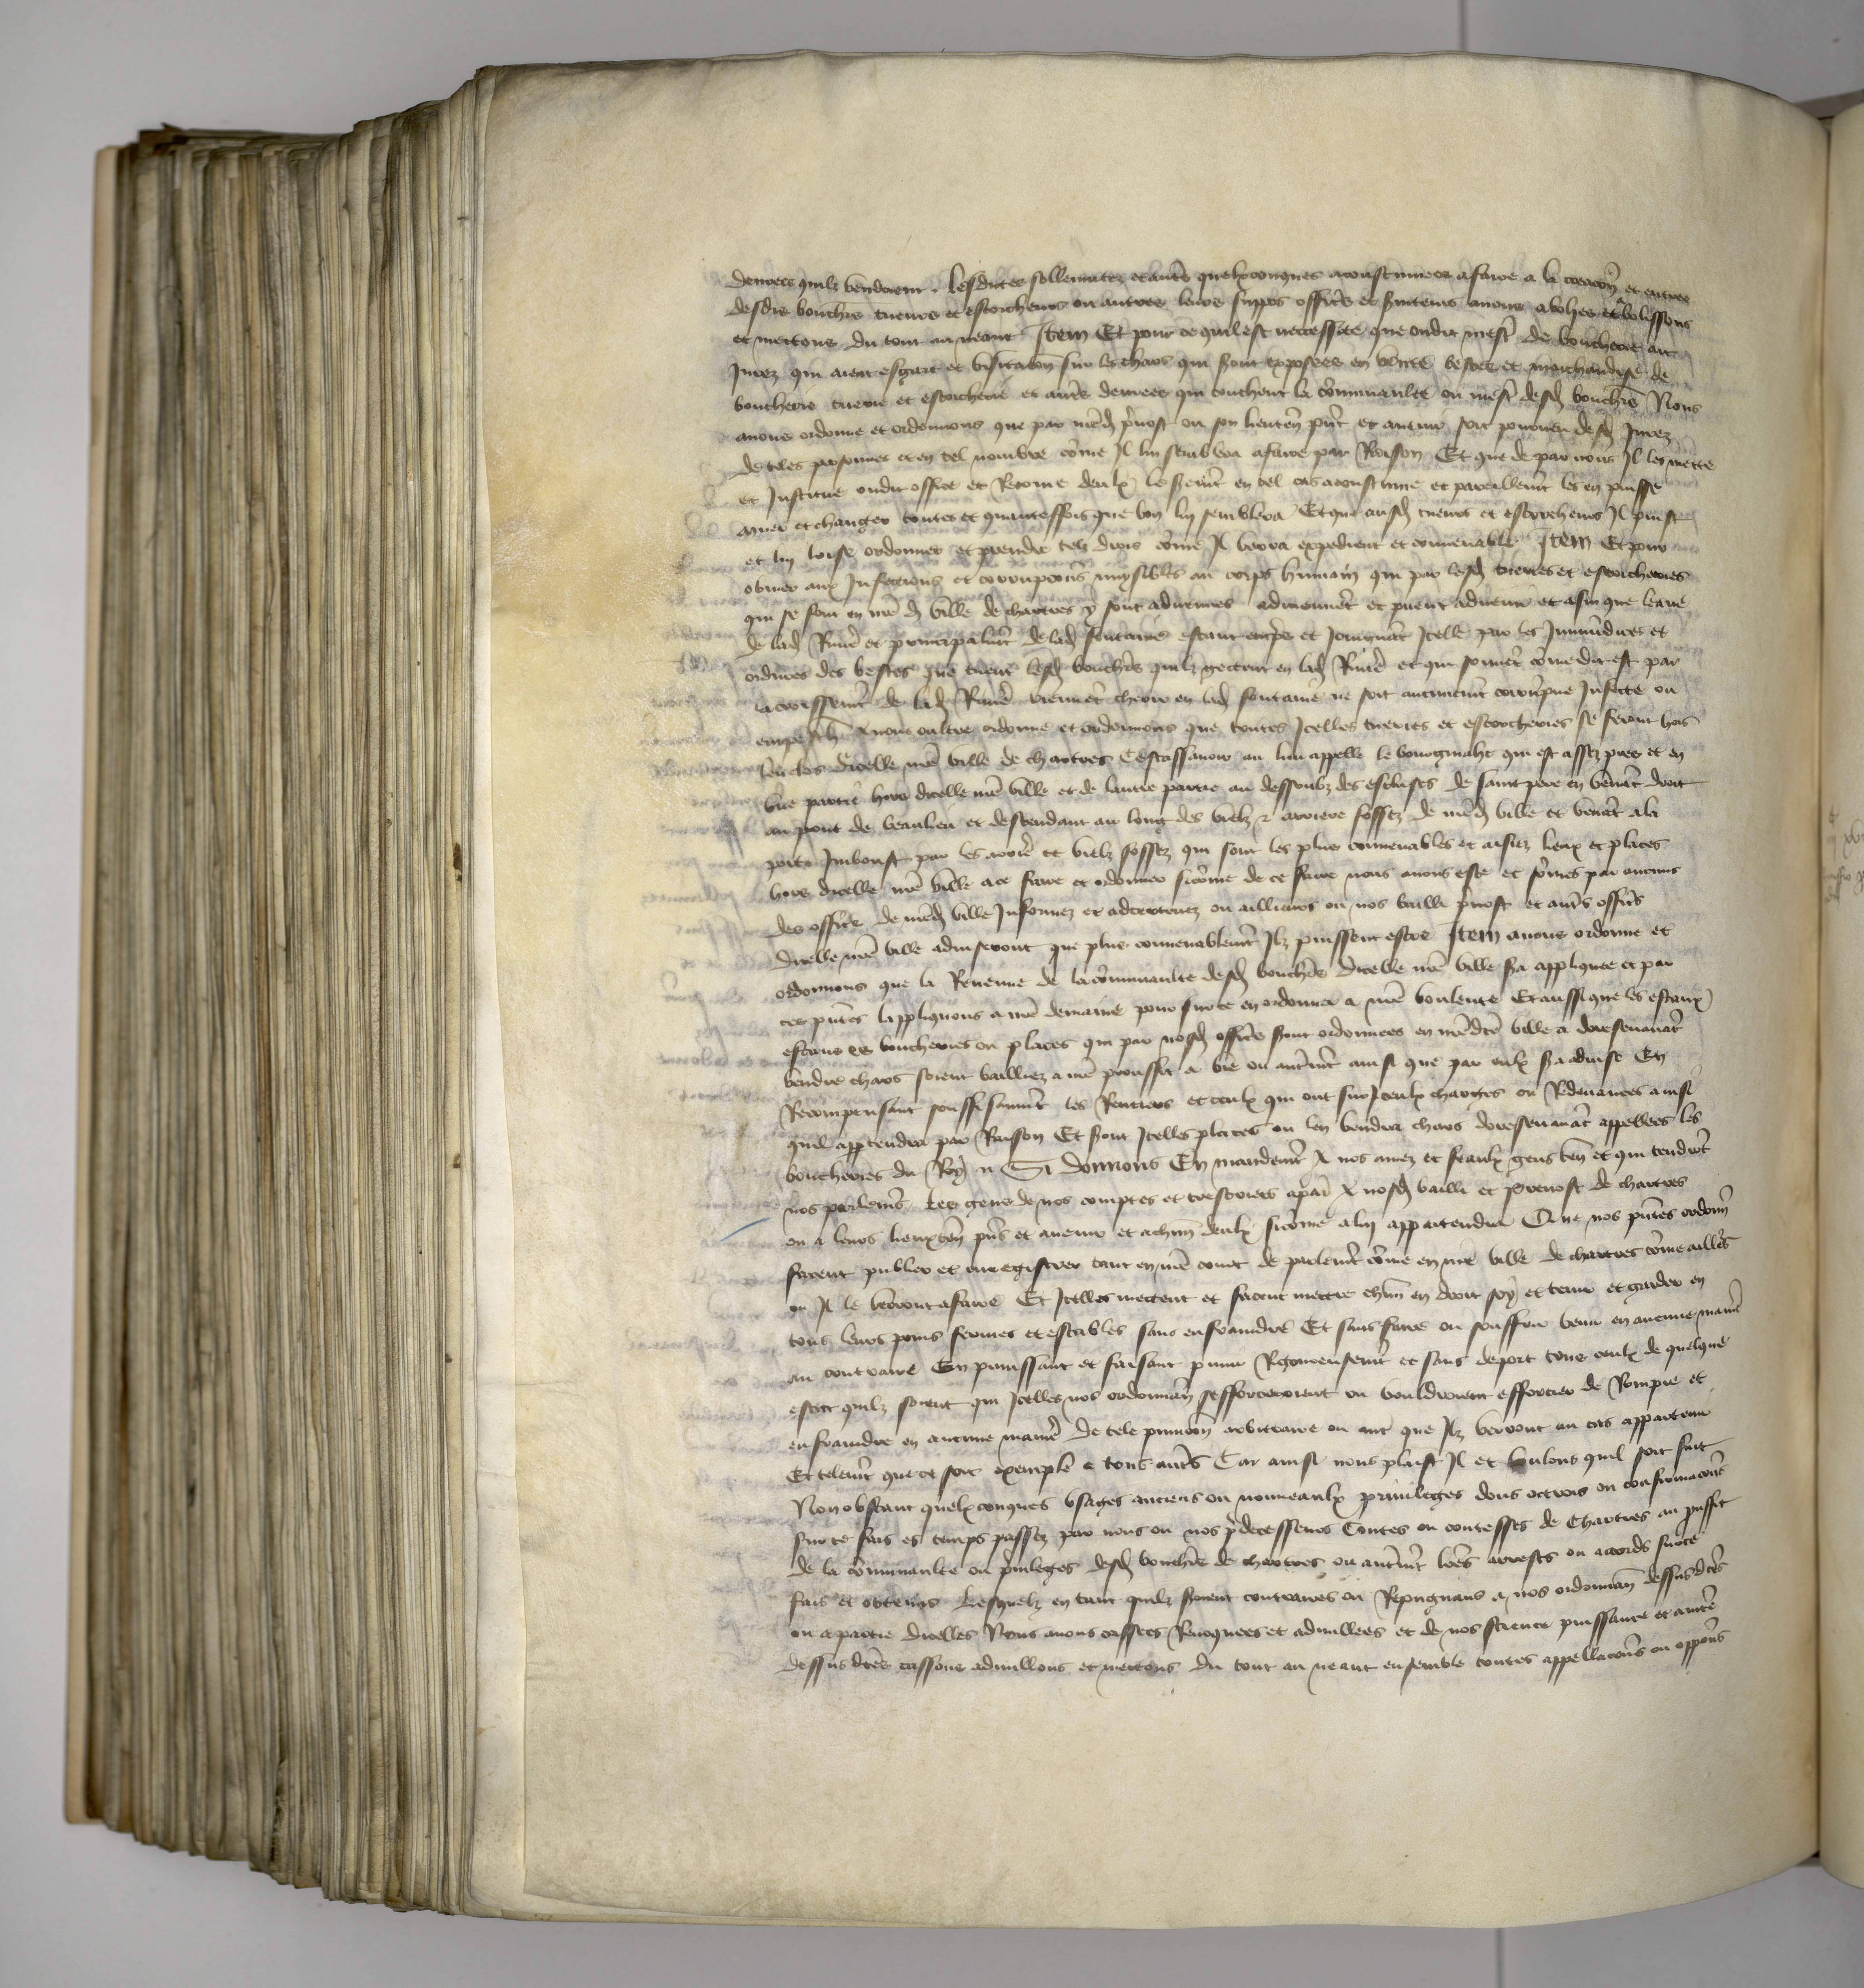 denrees quilz vendoient. Lesdites sollennitez et autres quelxconques acoustumees a faire a la creacion et entree
desdis bouchers tueurs et escorcheurs ou autres leurs suppos officiers et serviteurs avons abolies et abolissons
et mettons du tout au neant Item Et pour ce quil est neccessite que oudit mestier de boucherie ait
Jurez qui aient esgart et visitacion sur les chars qui sont exposees en vente bestes et marchandise de
boucherie tuerie et escorcherie et autres denrees qui touchent la communaulte ou mestier desdis bouchers Nous
avons ordonne et ordonnons que par nostredit prevost ou son lieutenant present et avenir soit pourveu desdis Jurez
de teles personnes et en tel nombre comme Il lui semblera a faire par Raison Et que de par nous Il les mette
et Institue oudit office et Recoive deulx le serement en tel cas acoustume et pareillement les en puisse
oster et changer toutes et quanteffois que bon lui semblera Et que ausdis tueurs et escorcheurs Il puist
et lui loise ordonner et prendre telz drois comme Il verra expedient et convenable Item Et pour
obvier aux Infections et corrupcions nuysibles au corps humain qui par lesdictes tueries et escorcheries
qui se font en nostredicte ville de chartres y sont advenues adviennent et puent advenir et afin que leaue
de ladicte Riviere et principalment de ladicte fontaine estant empres et Joingnant Icelle par les Immundices et
ordures des bestes que tuent lesdis bouchers quilz gectent en ladicte Riviere et qui souvent comme dit est par
lacroissement de ladicte Riviere viennent cheoir en ladicte fontaine ne soit aucunement corrumpue Infecte ou
empeschee Avons oultre ordonne et ordonnons que toutes Icelles tueries et escorcheries se feront hors
lenclos dicelle nostre ville de chartres Cestassavoir au lieu appelle le bourgmahe qui est assez pres et en
une partie hors dicelle nostre ville et de lautre partie au dessoubz des escluses de saint pere en venant droit
au pont de beaulieu et descendant au long des vielz et arriere fossez de nostredicte ville et venant a la
porte Imboust par les arriere et vielz fossez qui sont les plus convenables et aisiez lieux et places
hors dicelle nostre ville a ce faire et ordonner sicomme de ce faire nous avons este et sommes par aucuns
des officiers de nostredicte ville Informez et adcertenez ou ailleurs ou nos bailli prevost et autres officiers
dicelle nostre ville adviseront que plus convenablement Ilz puissent estre Item avons ordonne et
ordonnons que la Revenue de la communaulte desdis bouchers dicelle nostre ville sera appliquee et par
ces presentes lappliquons a nostre demaine pour sur ce en ordonner a nostre voulente Et aussi que les estaux
estans es boucheries ou places qui par nosdis officiers sont ordonnees en nostredicte ville a doresenavant
vendre chars soient bailliez a nostre prouffit a vie ou autrement ainsi que par eulx sera advise En
Recompensant souffisamment les Rentiers et ceulx qui ont sur Iceulx charges ou Redevances ainsi
quil appartendra par Raison Et sont Icelles places ou len vendra chars doresenavant appellees les
boucheries du Roy Si donnons En mandement A nos amez et feaulx gens tenans et qui tendront
nos parlemens Les gens de nos comptes et tresoriers a paris A nosdis bailli et prevost de chartres
ou a leurs lieuxtenans presens et avenir et a chascun deulx sicomme a lui appartendra Que nos presentes ordonnances
facent publier et enregistrer tant en nostre court de parlement comme en nostre ville de chartres comme ailleurs
ou Il le verront a faire Et Icelles mettent et facent mettre chascun en droit soy et tenir et garder en
tous leurs poins fermes et estables sans enfraindre Et sans faire ou souffrir venir en aucune maniere
au contraire En punissant et faisant punir Rigoreusement et sans deport tous ceulx de quelque
estat quilz soient qui Icelles nos ordonnances sefforceroient ou vouldroient efforcier de Rompre et
enfraindre en aucune maniere de tele punicion arbitraire ou autre que Ilz verront au cas appartenir
Et telement que ce soit exemple a tous autres Car ainsi nous plaist Il et voulons quil soit fait
Nonobstant quelxconques usages anciens ou nouveaulx privileges dons octrois ou confirmacions
sur ce fais es temps passez par nous ou nos predecesseurs Contes ou contesses de Chartres au prouffit
de la communaulte ou privileges desdis bouchers de chartres ou autrement lettres arrests ou accords sur ce
fais et obtenus Lesquelz en tant quilz seroient contraires ou Repugnans a nos ordonnances dessusdictes
ou a partie dicelles Nous avons cassees Revoquees et adnullees et de nos science puissance et auctorite
dessusdictes cassons adnullons et mettons du tout au neant ensemble toutes appellacions ou opposicions